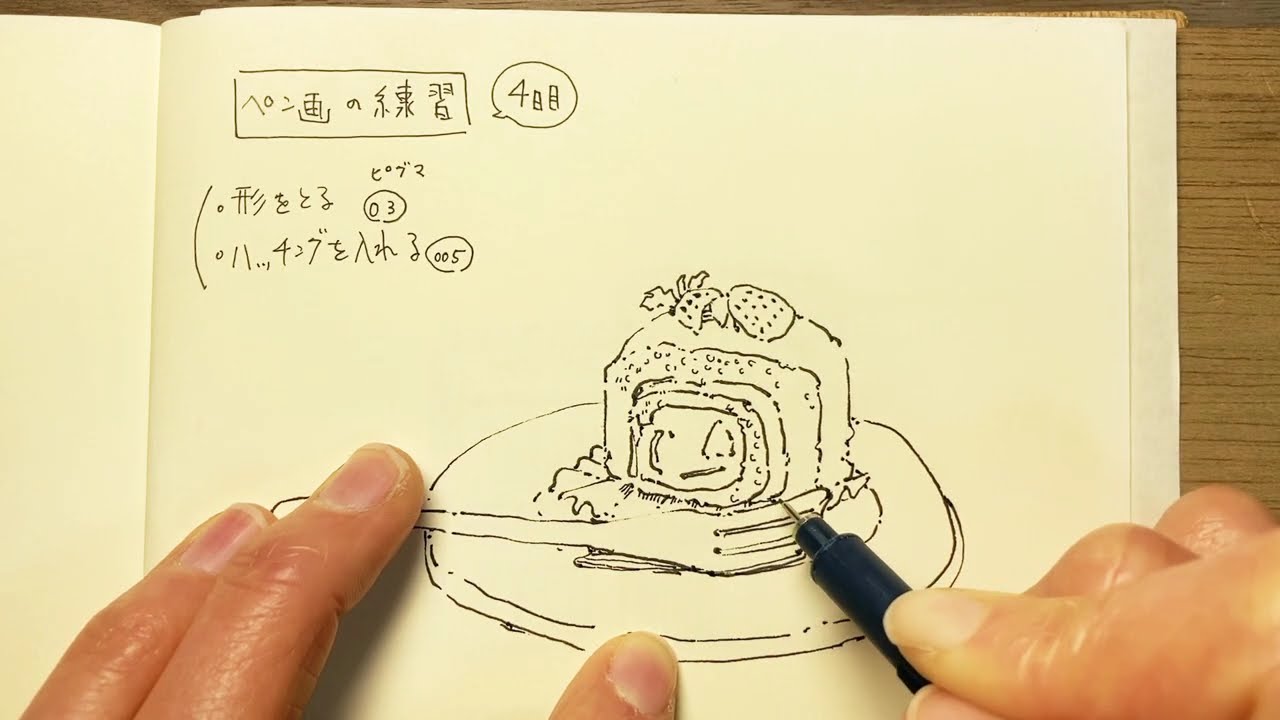 ペン画の練習
4日目
ピグマ
。形をとる 03
。ハッチングを入れる 005